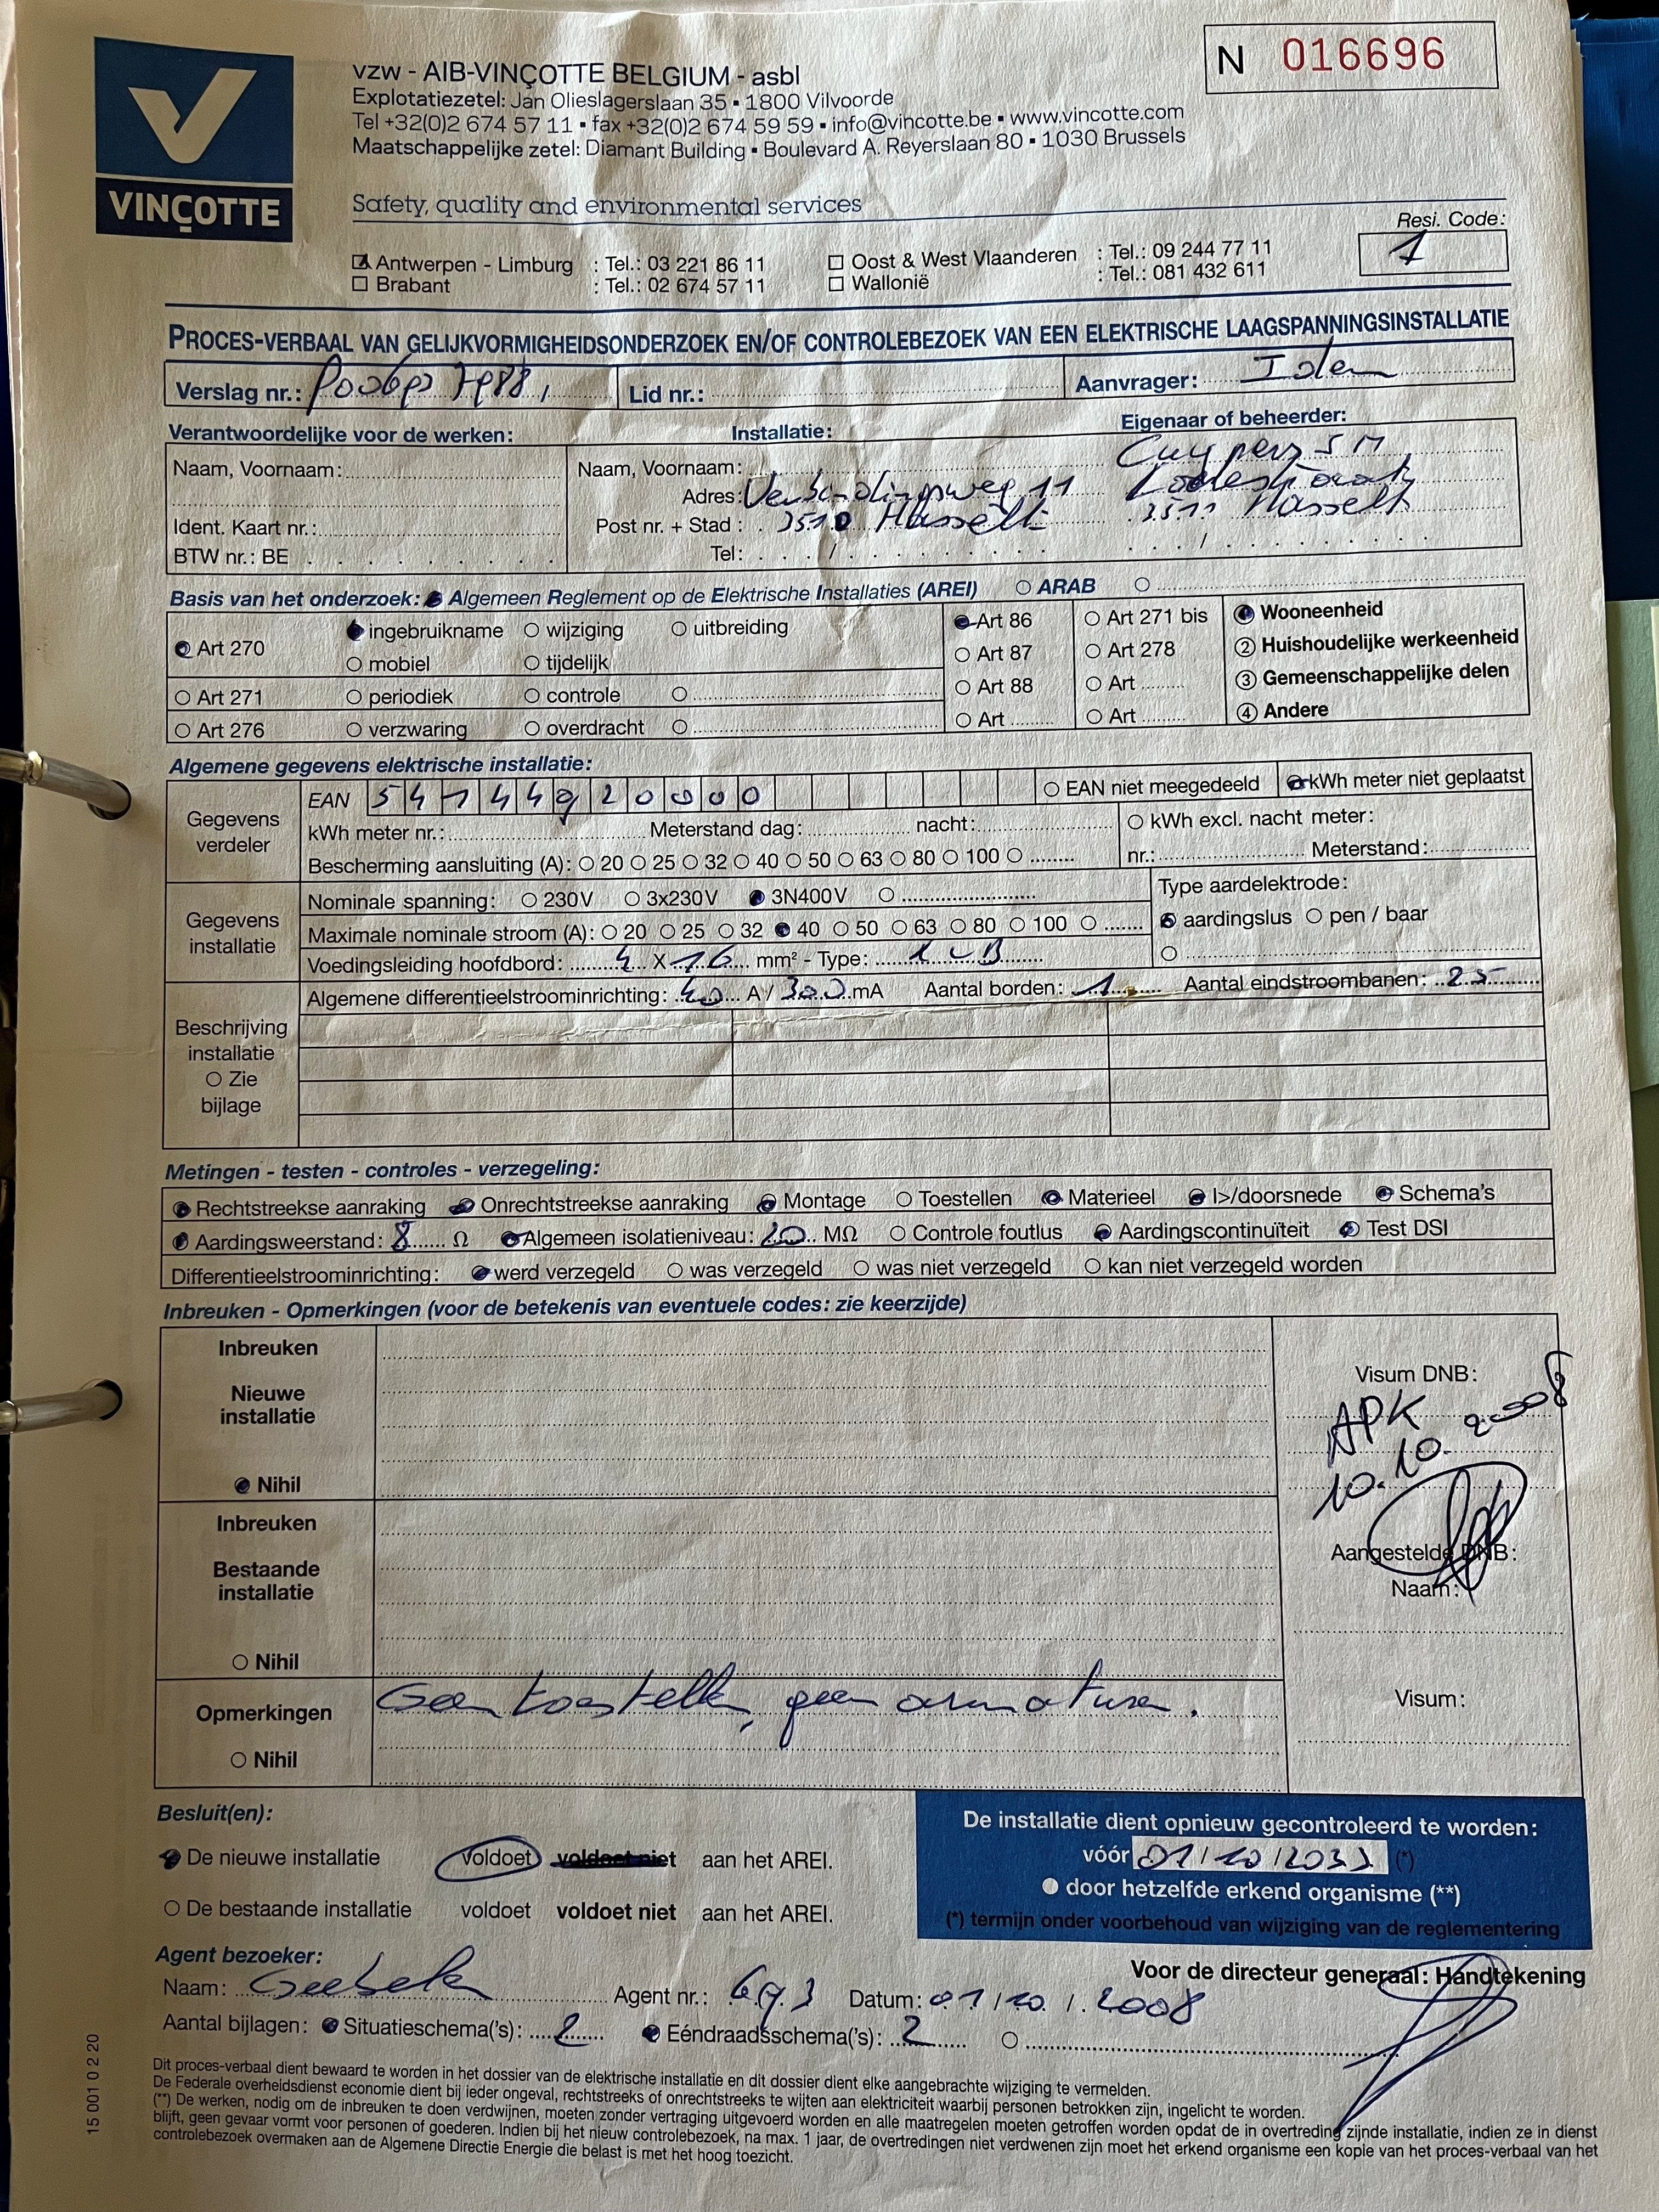 N 016696
VINÇOTTE
vzw - AIB-VINÇOTTE BELGIUM - asbl
Explotatiezetel: Jan Olieslagerslaan 35 ▪ 1800 Vilvoorde
Tel +32(0)2 674 57 11 ▪ fax +32(0)2 674 59 59 ▪ info@vincotte.be ▪ www.vincotte.com
Maatschappelijke zetel: Diamant Building ▪ Boulevard A. Reyerslaan 80 ▪ 1030 Brussels
Safety, quality and environmental services
Resi. Code:
1
Antwerpen - Limburg : Tel.: 03 221 86 11 Oost & West Vlaanderen : Tel.: 09 244 77 11
Brabant : Tel.: 02 674 57 11 Wallonië : Tel.: 081 432 611
PROCES-VERBAAL VAN GELIJKVORMIGHEIDSONDERZOEK EN/OF CONTROLEBEZOEK VAN EEN ELEKTRISCHE LAAGSPANNINGSINSTALLATIE
Verslag nr.: Lid nr.: Aanvrager: Idem
Verantwoordelijke voor de werken: Installatie: Eigenaar of beheerder:
Naam, Voornaam: Naam, Voornaam: Cuypers
Adres: Verbindingsweg 11
Ident. Kaart nr.: Post nr. + Stad: 3510 Hasselt 3511 Hasselt
BTW nr.: BE Tel: / /
Basis van het onderzoek: Algemeen Reglement op de Elektrische Installaties (AREI) ARAB
Art 270 ingebruikname wijziging uitbreiding Art 86 Art 271 bis Wooneenheid
mobiel tijdelijk Art 87 Art 278 2 Huishoudelijke werkeenheid
Art 271 periodiek controle Art 88 Art 3 Gemeenschappelijke delen
Art 276 verzwaring overdracht Art Art 4 Andere
Algemene gegevens elektrische installatie:
Gegevens verdeler
EAN 54144920000 EAN niet meegedeeld kWh meter niet geplaatst
kWh meter nr.: Meterstand dag: nacht: kWh excl. nacht meter:
Bescherming aansluiting (A): 20 25 32 40 50 63 80 100 nr.: Meterstand:
Gegevens installatie
Nominale spanning: 230V 3x230V 3N400V Type aardelektrode:
Maximale nominale stroom (A): 20 25 32 40 50 63 80 100 aardingslus pen / baar
Voedingsleiding hoofdbord: 4 X 16 mm² - Type:
Algemene differentieelstroominrichting: 40 A / 300 mA Aantal borden: 1 Aantal eindstroombanen: 25
Beschrijving
installatie
Zie
bijlage
Metingen - testen - controles - verzegeling:
Rechtstreekse aanraking Onrechtstreekse aanraking Montage Toestellen Materieel I>/doorsnede Schema's
Aardingsweerstand: 8 Ω Algemeen isolatieniveau: 20 MΩ Controle foutlus Aardingscontinuïteit Test DSI
Differentieelstroominrichting: werd verzegeld was verzegeld was niet verzegeld kan niet verzegeld worden
Inbreuken - Opmerkingen (voor de betekenis van eventuele codes: zie keerzijde)
Inbreuken
Nieuwe
installatie
Nihil
Visum DNB:
APK
10.10.2008
Inbreuken
Bestaande
installatie
Nihil
Aangestelde DNB:
Naam:
Opmerkingen
Nihil
Geen toestellen, geen armaturen.
Visum:
Besluit(en):
De nieuwe installatie voldoet voldoet niet aan het AREI.
De bestaande installatie voldoet voldoet niet aan het AREI.
De installatie dient opnieuw gecontroleerd te worden:
vóór 01/10/2033 (*)
door hetzelfde erkend organisme (**)
(*) termijn onder voorbehoud van wijziging van de reglementering
Agent bezoeker: Voor de directeur generaal: Handtekening
Naam: Agent nr.: 693 Datum: 01/10/2008
Aantal bijlagen: Situatieschema('s): 2 Eéndraadsschema('s): 2
Dit proces-verbaal dient bewaard te worden in het dossier van de elektrische installatie en dit dossier dient elke aangebrachte wijziging te vermelden.
De Federale overheidsdienst economie dient bij ieder ongeval, rechtstreeks of onrechtstreeks te wijten aan elektriciteit waarbij personen betrokken zijn, ingelicht te worden.
(**) De werken, nodig om de inbreuken te doen verdwijnen, moeten zonder vertraging uitgevoerd worden en alle maatregelen moeten getroffen worden opdat de in overtreding zijnde installatie, indien ze in dienst
blijft, geen gevaar vormt voor personen of goederen. Indien bij het nieuw controlebezoek, na max. 1 jaar, de overtredingen niet verdwenen zijn moet het erkend organisme een kopie van het proces-verbaal van het
controlebezoek overmaken aan de Algemene Directie Energie die belast is met het hoog toezicht.
15 001 0 2 20